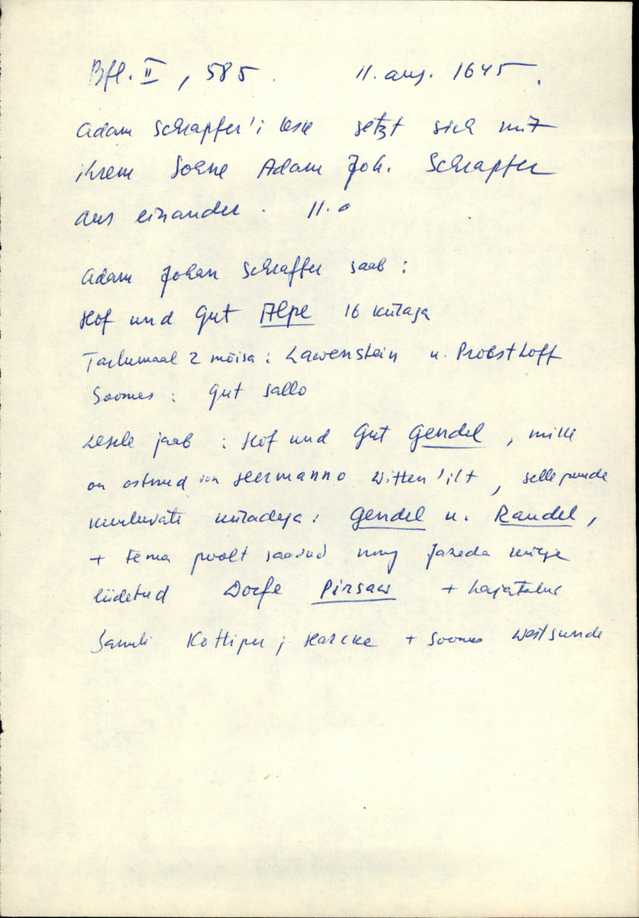 Bfl. II, 585. 11. aug. 1645.
Adam Schrapfer'i lesk setzt sich mit
ihrem Sohne Adam Joh. Schrapfer
aus einander. 11.
Adam Johan Schraffer saab:
Hof und Gut Alpe 16 külaga
Tartumaal 2 mõisa: Lawenstein u. Probsthoff
Soomes: Gut Sallo
Lesele jääb: Hof und Gut Gendel, mille
on ostnud von Hermanno Witten'ilt, selle juurde
kuuluvate küladega: Gendel u. Raudel,
+ tema poolt saadud ning Jäneda külge
liidetud Dorfe Pirsaw + hajatalud
Samuti Kottipu; Harcke + Soomes Weitsunde